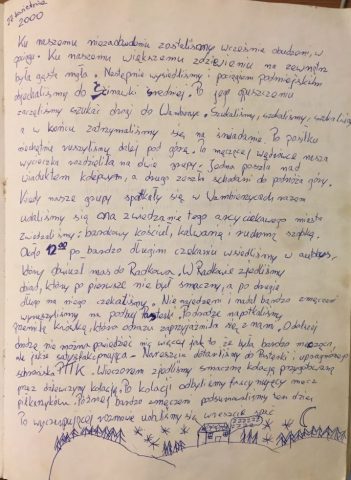 28 kwietnia
2000
Ku naszemu niezadowoleniu zostaliśmy wcześnie obudzeni, w
. Ku naszemu większemu zdziwieniu na zewnątrz
była gęsta mgła. Następnie wysiedliśmy i pociągiem podmiejskim
dojechaliśmy do Ścinawki Średniej. Po jego opuszczeniu
zaczęliśmy szukać drogi do Wambierzyc. Szukaliśmy, szukaliśmy, szukaliśmy
a w końcu zatrzymaliśmy się na śniadanie. Po posiłku
niechętnie ruszyliśmy dalej pod górę. Po męczącej wędrówce nasza
wycieczka rozdzieliła na dwie grupy. Jedna poszła nad
wiaduktem kolejowym, a druga zeszła schodami do podnóża góry.
Kiedy nasze grupy spotkały się w Wambierzycach razem
udaliśmy się na zwiedzanie tego arcyciekawego miasta
Zwiedzaliśmy: barokowy kościół, kalwarię i ruchomą szopkę.
Około 12 00 po bardzo długim czekaniu wsiedliśmy w autobus,
który dowiózł nas do Radkowa. W Radkowie zjedliśmy
obiad, który po pierwsze nie był smaczny, a po drugie
długo na niego czekaliśmy. Nie najedzeni i nadal bardzo zmęczeni
wyruszyliśmy na podbój Pasterki. Po drodze napotkaliśmy
króciutką, która odrazu zaprzyjaźniła się z nami. O dalszej
drodze nie można powiedzieć nic więcej jak to że była bardzo męcząca,
ale jakże satysfakcjonująca. Nareszcie dotarliśmy do Pasterki i upragnionego
schroniska PTTK. Wieczorem zjedliśmy smaczną kolację przygotowaną
przez dziewczyny kolację. Po kolacji odbyliśmy fascynujący mecz
piłkarzyków. Później bardzo zmęczeni podsumowaliśmy ten dzień
Po wyczerpującej rozmowie udaliśmy się wreszcie spać